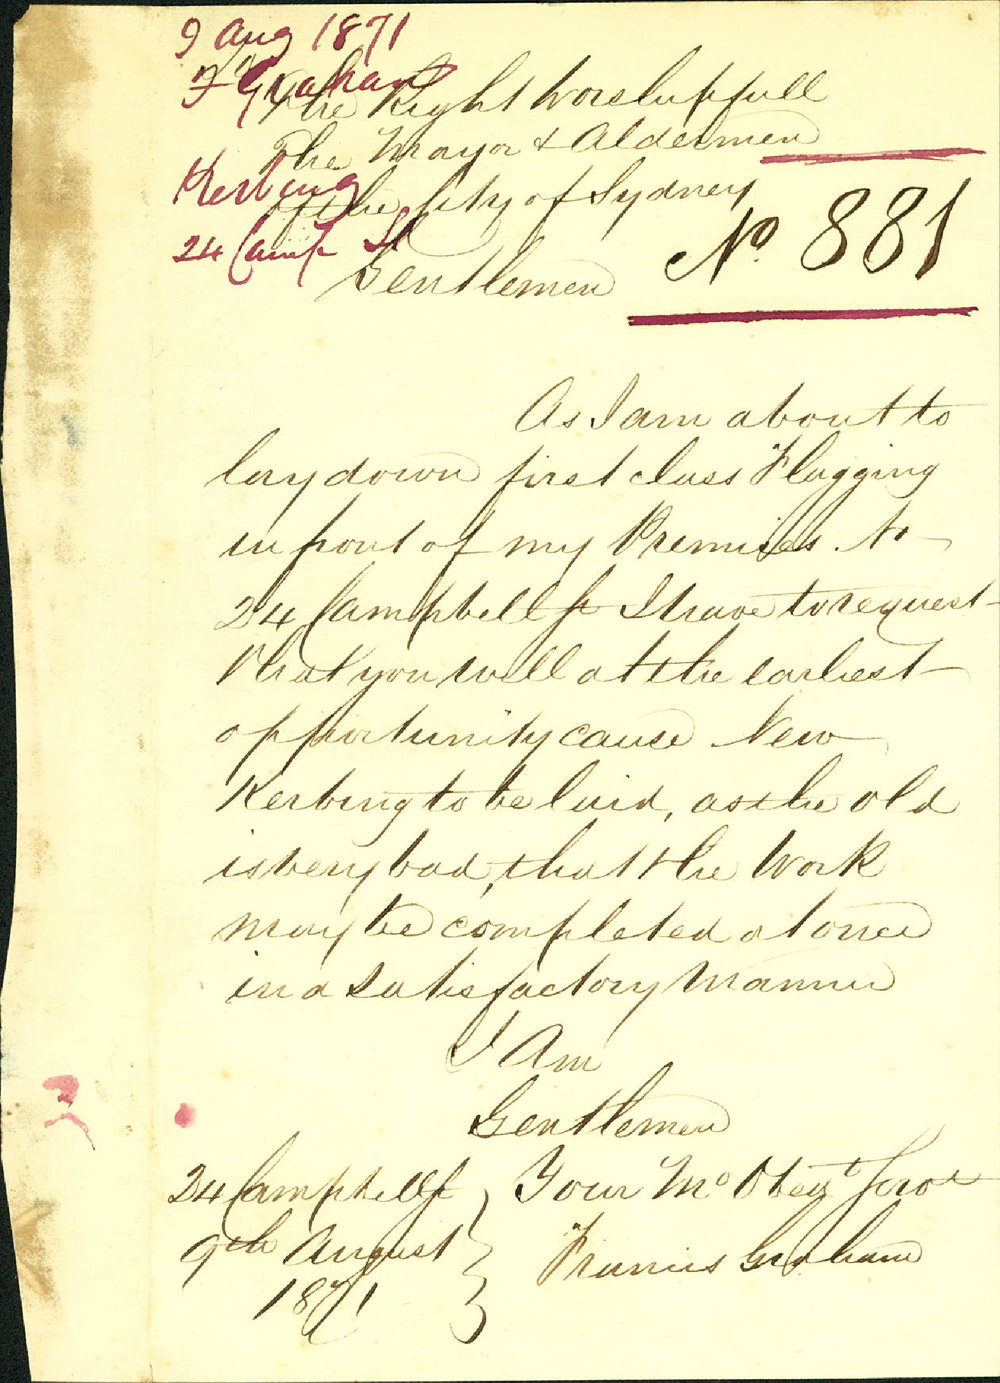 9 Aug 1871
F Graham
Kerbing
24 Camp St
The Right Worshupfull
The Mayor & Aldermen
of the City of Sydney
No 881
Gentlemen
As I am about to
lay down first class Flagging
in front of my Premises. No
24 Campbell St I have to request
that you will at the earliest
opportunity cause New
Kerbing to be laid, as the old
is very bad, that the Work
may be completed at once
in a Satisfactory Manner
I Am
Gentlemen
Your Mo Obedt Servt
Francis Graham
24 Campbell St
9th August
1871